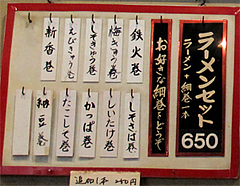 ラーメンセット
ラーメン+細巻一本
650
お好きな細巻をどうぞ
鉄火巻
梅きゅう巻
しそきゅう巻
えびきゅう巻
新香巻
しそさば巻
しいたけ巻
かっぱ巻
たこしそ巻
納豆巻
追加1本